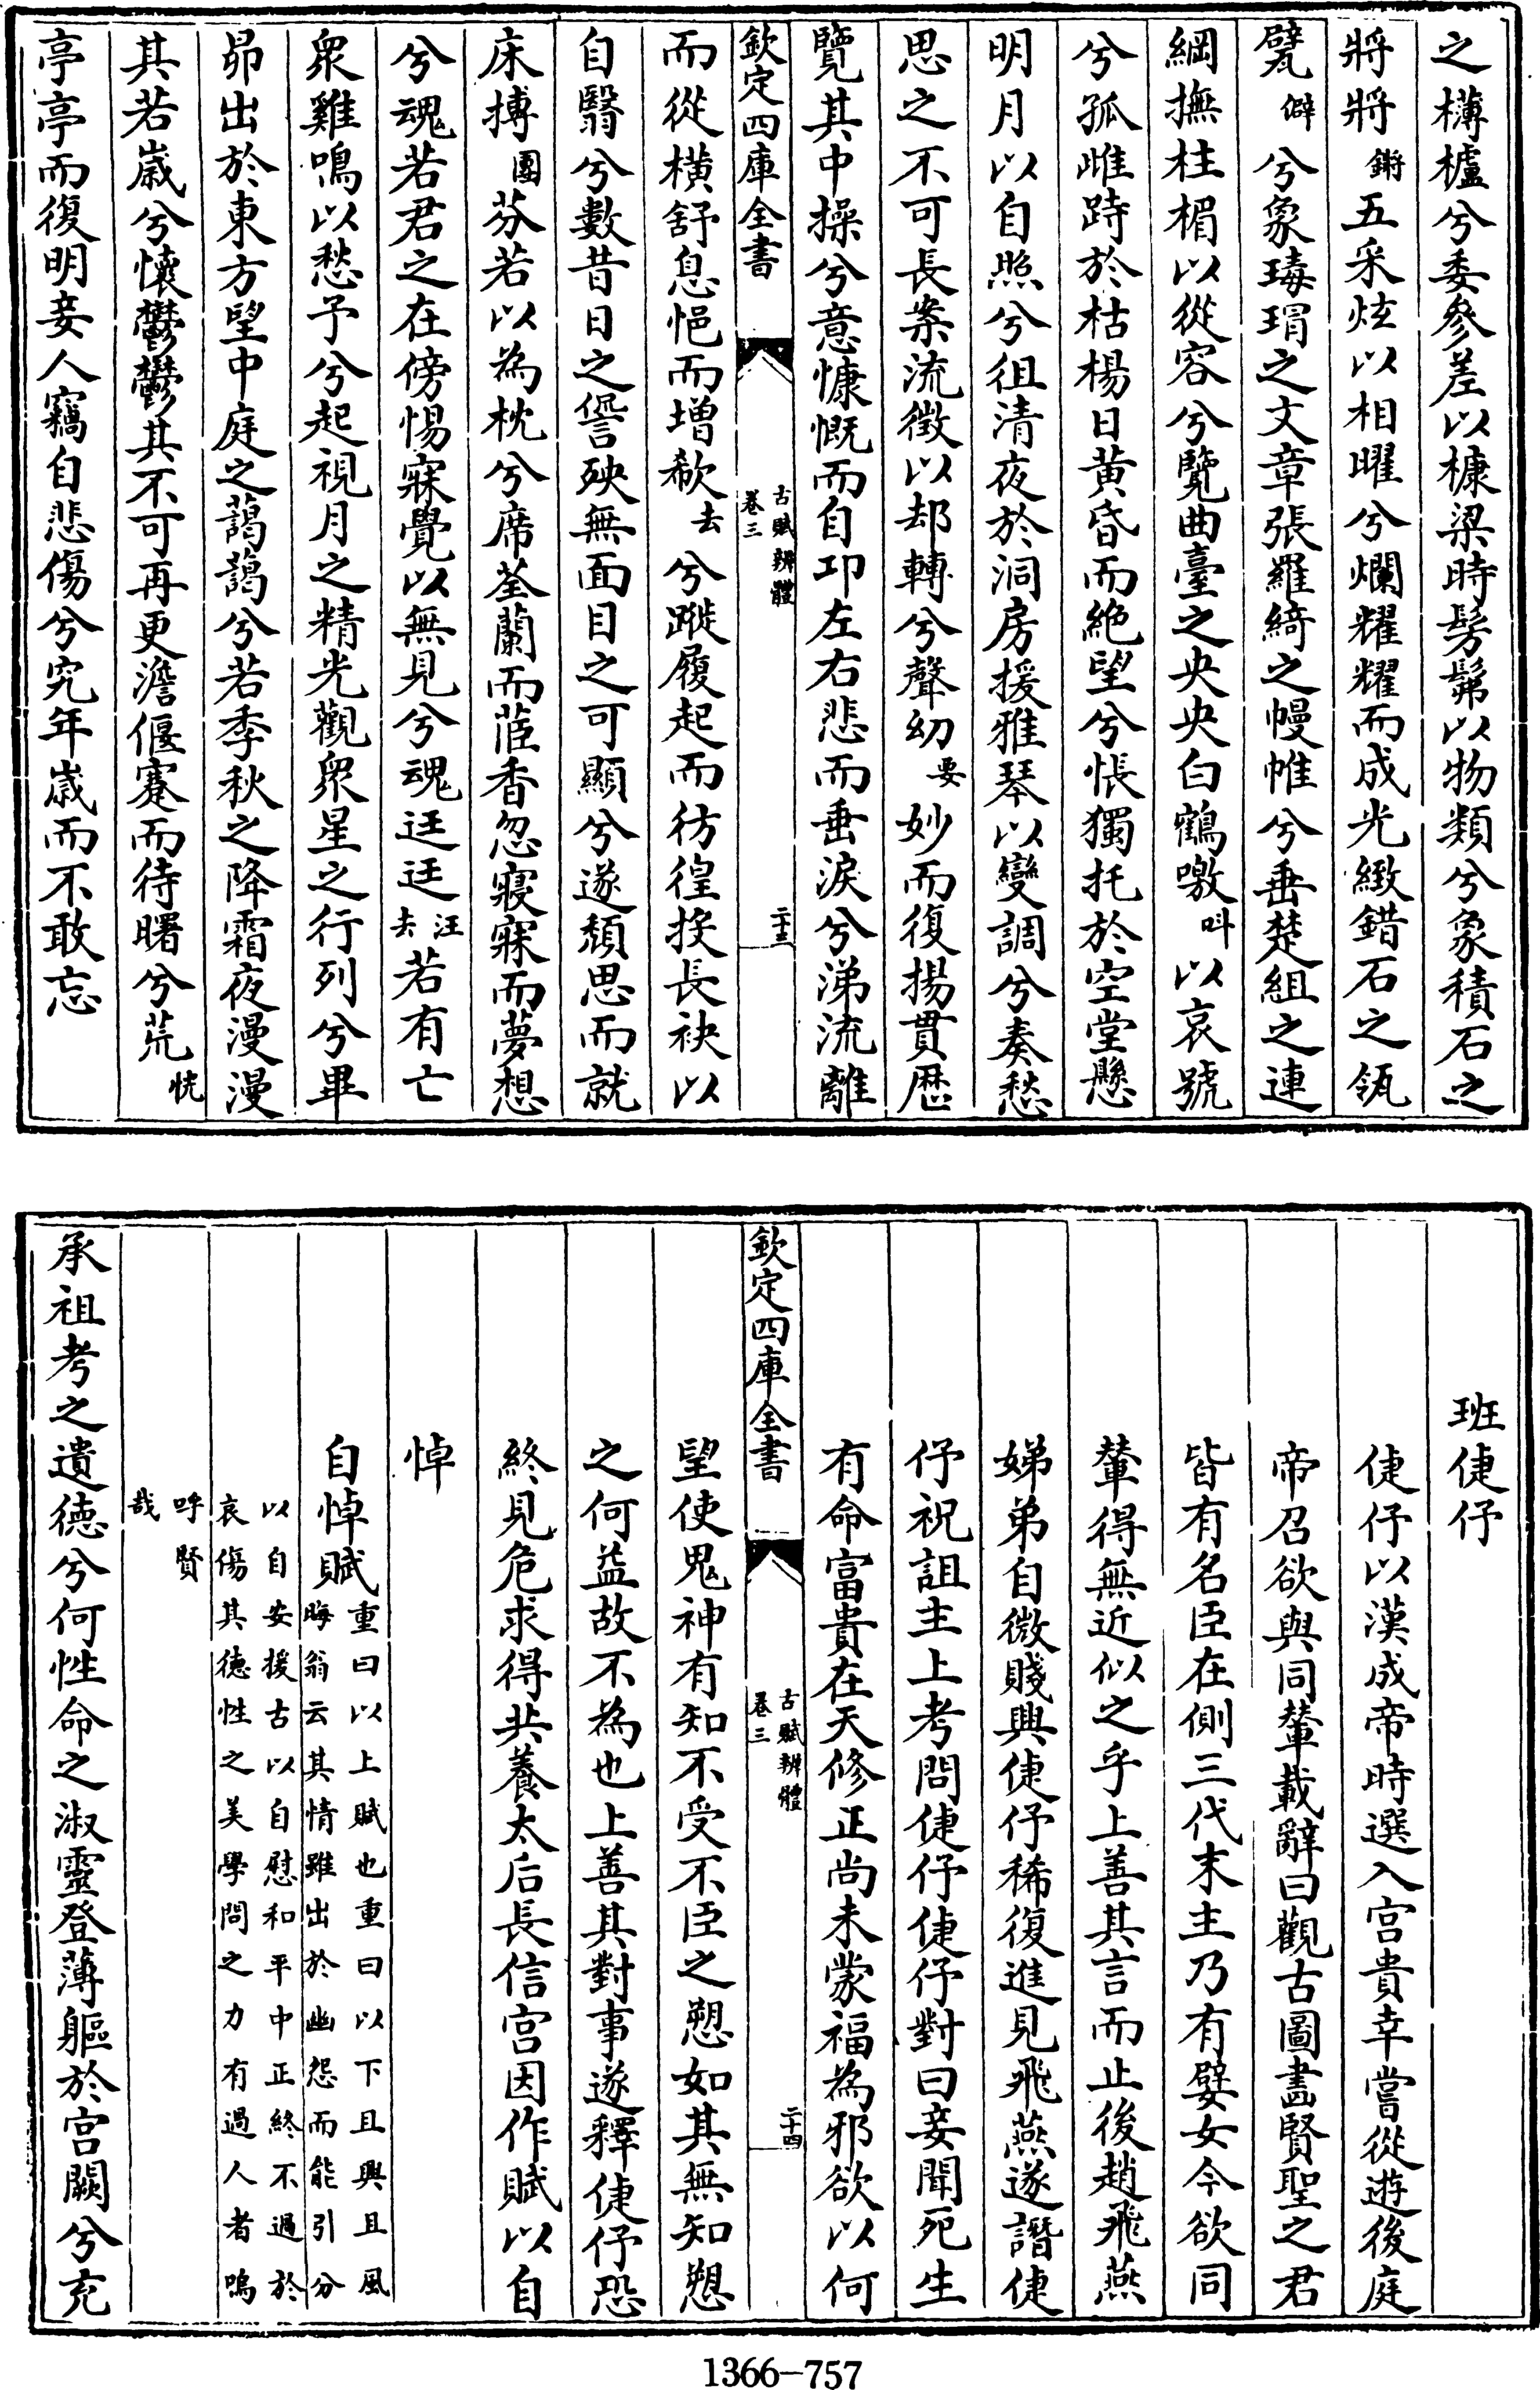 之欂櫨兮委參差以槺梁時髣髴以物類兮象積石之
將將鏘五采炫以相曜兮爛耀耀而成光緻錯石之瓴
甓僻兮象瑇瑁之文章張羅綺之幔帷兮垂楚組之連
綱撫柱楣以從容兮覽曲臺之央央白鶴噭叫以哀號
兮孤雌跱於枯楊日黄昏而絶望兮悵獨托於空堂懸
明月以自照兮徂清夜於洞房援雅琴以變調兮奏愁
思之不可長案流徵以却轉兮聲幼要妙而復揚貫歴
覽其中操兮意慷慨而自卬左右悲而垂淚兮涕流離
欽定四庫全書 古賦辨體 卷三 二十三
而從横舒息悒而增欷去兮蹝履起而彷徨揄長袂以
自翳兮數昔日之諐殃無面目之可顯兮遂頽思而就
床摶團芬若以為枕兮席荃蘭而茝香忽寢寐而夢想
兮魂若君之在傍惕寐覺以無見兮魂迋迋汪去若有亡
衆雞鳴以愁予兮起視月之精光觀衆星之行列兮畢
昴出於東方望中庭之藹藹兮若季秋之降霜夜漫漫
其若嵗兮懷鬱鬱其不可再更澹偃蹇而待曙兮荒恍
亭亭而復明妾人竊自悲傷兮究年嵗而不敢忘
班倢伃
倢伃以漢成帝時選入宫貴幸嘗從遊後庭
帝召欲與同輦載辭曰觀古圖畵賢聖之君
皆有名臣在側三代末主乃有嬖女今欲同
輦得無近似之乎上善其言而止後趙飛燕
娣弟自微賤興倢伃稀復進見飛燕遂譖倢
伃祝詛主上考問倢伃倢伃對曰妾聞死生
有命富貴在天修正尚未蒙福為邪欲以何
欽定四庫全書 古賦辨體 卷三 二十四
望使鬼神有知不受不臣之愬如其無知愬
之何益故不為也上善其對事遂釋倢伃恐
終見危求得共養太后長信宫因作賦以自
悼
自悼賦重曰以上賦也重曰以下且興且風
晦翁云其情雖出於幽怨而能引分
以自安援古以自慰和平中正終不過於
哀傷其徳性之美學問之力有過人者嗚
呼賢
哉
承祖考之遺徳兮何性命之淑靈登薄軀於宫闕兮充
1366-757